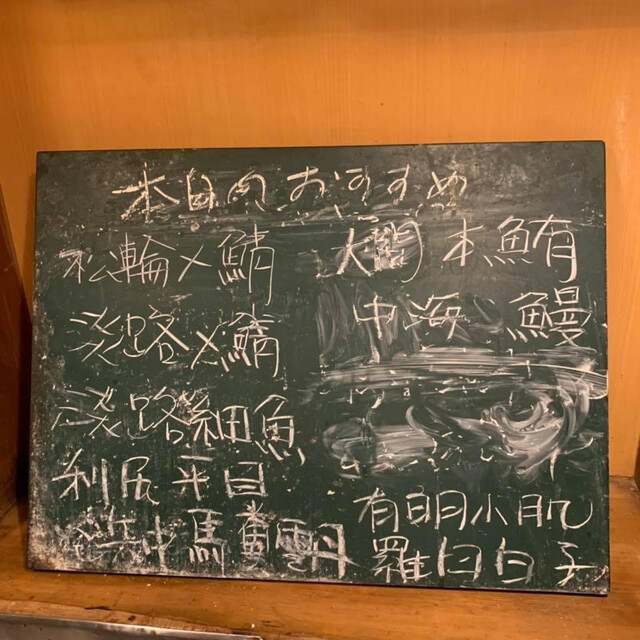 本日のおすすめ
松輪〆鯖
淡路〆鯖
淡路細魚
利尻平目
浜中馬糞雲丹
大間本鮪
中海鰻
有明小肌
羅臼白子